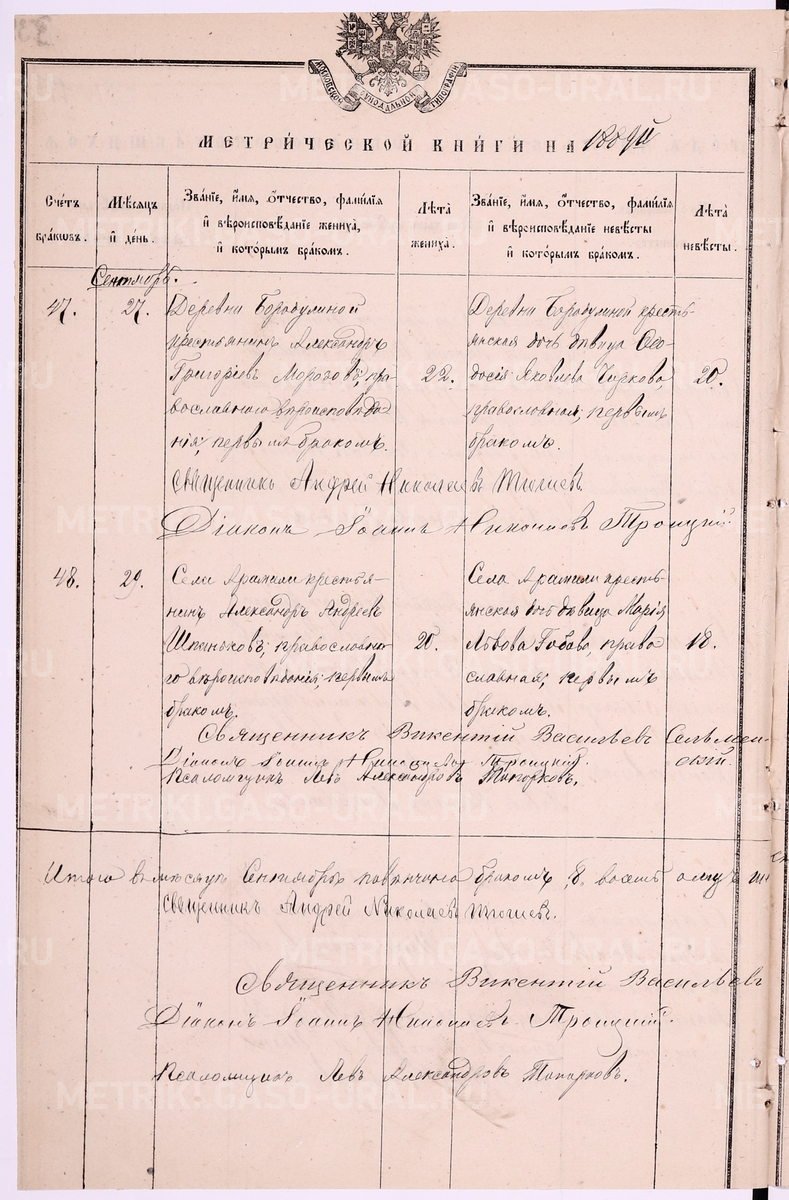 МОСКОВСКОЙ СѴНОДАЛЬНОЙ ТИПОГРАФІИ
МЕТРИ́ЧЕСКОЙ КНИ́ГИ НА 1889й
Сче́тъ бра́ковъ.
Мѣ́сяцъ и҆ де́нь.
Зва́нїе, и҆́мя, ѻ҆́тчество, фами́лїя
и҆ вѣроисповѣ́данїе жениха̀,
и҆ кото́рымъ бра́комъ.
Лѣ́та жениха̀.
Зва́нїе, и҆́мя, ѻ҆́тчество, фами́лїя
и҆ вѣроисповѣ́данїе невѣ́сты
и҆ кото́рымъ бра́комъ.
Лѣ́та невѣ́сты.
Сентябрь.
47. 27. Деревни Бородулиной
крестьянинъ Александръ
Григорьевъ Морозовъ, пра-
вославнаго вѣроисповѣда-
нія; первымъ бракомъ.
22.
Деревни Бородулиной кресть-
янская дочь дѣвица Ѳео-
досія Яковлева Чиркова,
православная; первымъ
бракомъ.
20.
Священникъ Андрей Николаевъ
Діаконъ Іоаннъ Николаевъ Троицкій
48. 29. Села Арамили крестья-
нинъ Александръ Андреевъ
Шпаньковъ; православна-
го вѣроисповѣданія; первымъ
бракомъ.
20.
Села Арамили кресть-
янская дочь дѣвица Марія
Львова, право
славная; первымъ
бракомъ.
18.
Священникъ Викентій Васильевъ Сельмен-
скій.
Діаконъ Іоаннъ Николаевъ Троицкій.
Псаломщикъ Левъ Александровъ Топорковъ.
Итого въ мѣсяцѣ Сентябрѣ повѣнчано бракомъ 8 восемь
Священникъ Андрей Николаевъ
Священникъ Викентій Васильевъ
Діаконъ Іоаннъ Николаевъ Троицкій.
Псаломщикъ Левъ Александровъ Топорковъ.
METRIKI.GASO-URAL.RU